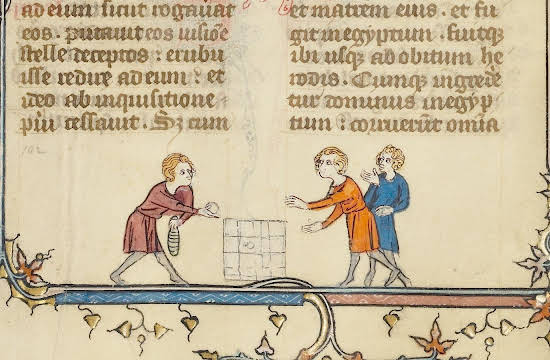 ad eum sicut rogauat
eos. putauit eos uisiōe
stelle deceptos : erubu
isse redire ad eum : et
ideo ab inquisitione
cessauit. Sz cum
et matrem eius. et fu
git in egyptum. fuitqꝫ
ibi usqꝫ ad obitum he
rodis. Cumqꝫ ingrede
tur dominus in egyp
tum : corruerūt omīa